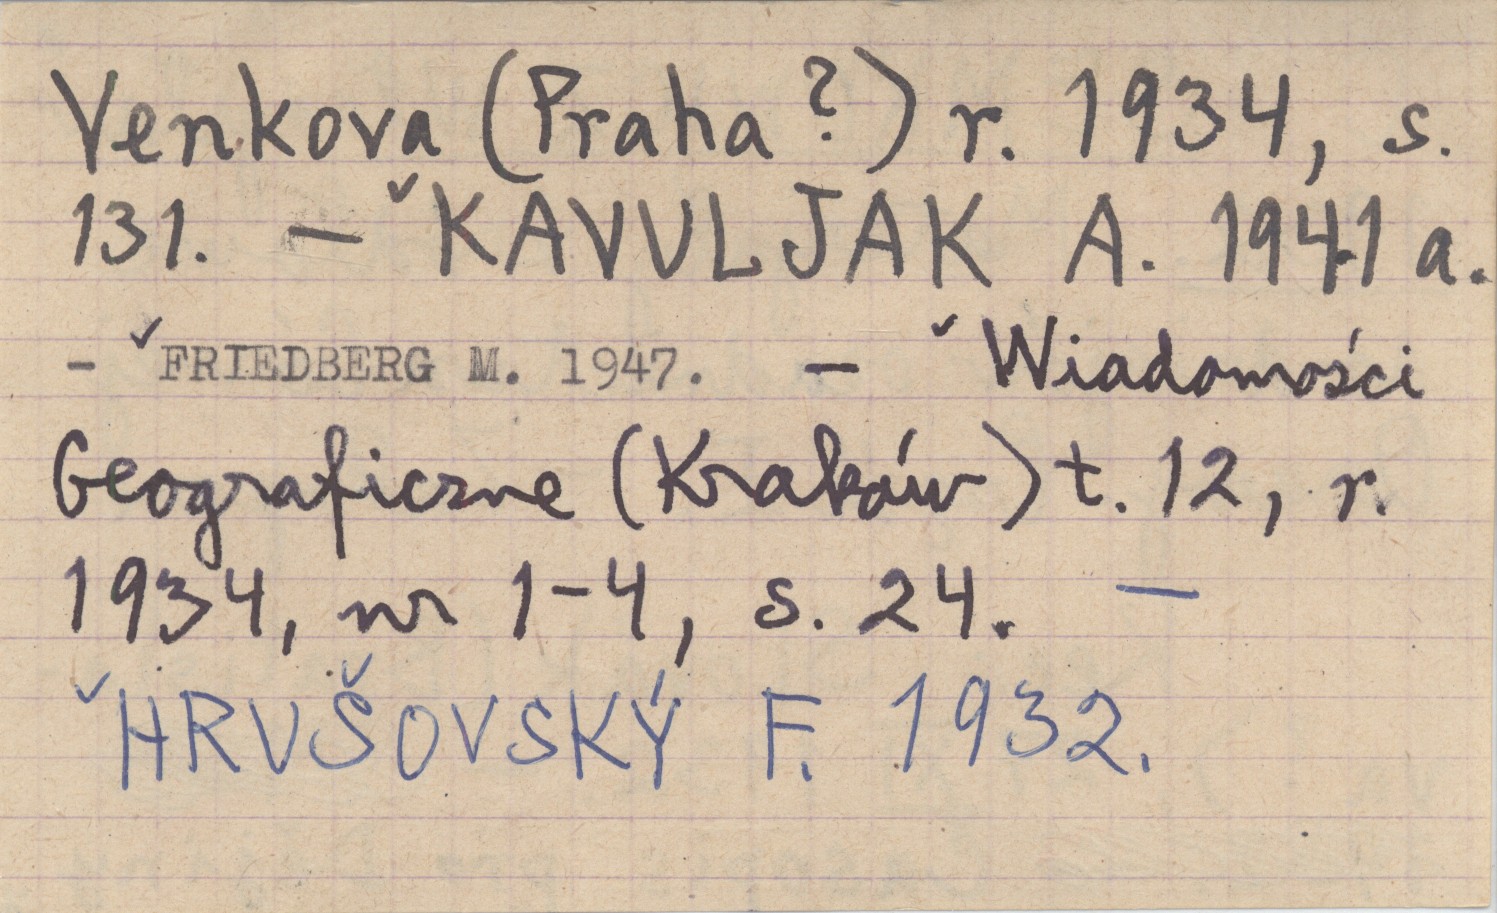 Venkova (Praha ?) r. 1934, s.
131. – ˇKAVULJAK A. 1941 a.
- ˇFRIEDBERG M. 1947. – ˇWiadomości
Geograficzne (Kraków) t. 12, r.
1934, nr 1-4, s. 24. –
ˇHRUŠOVSKÝ F. 1932.